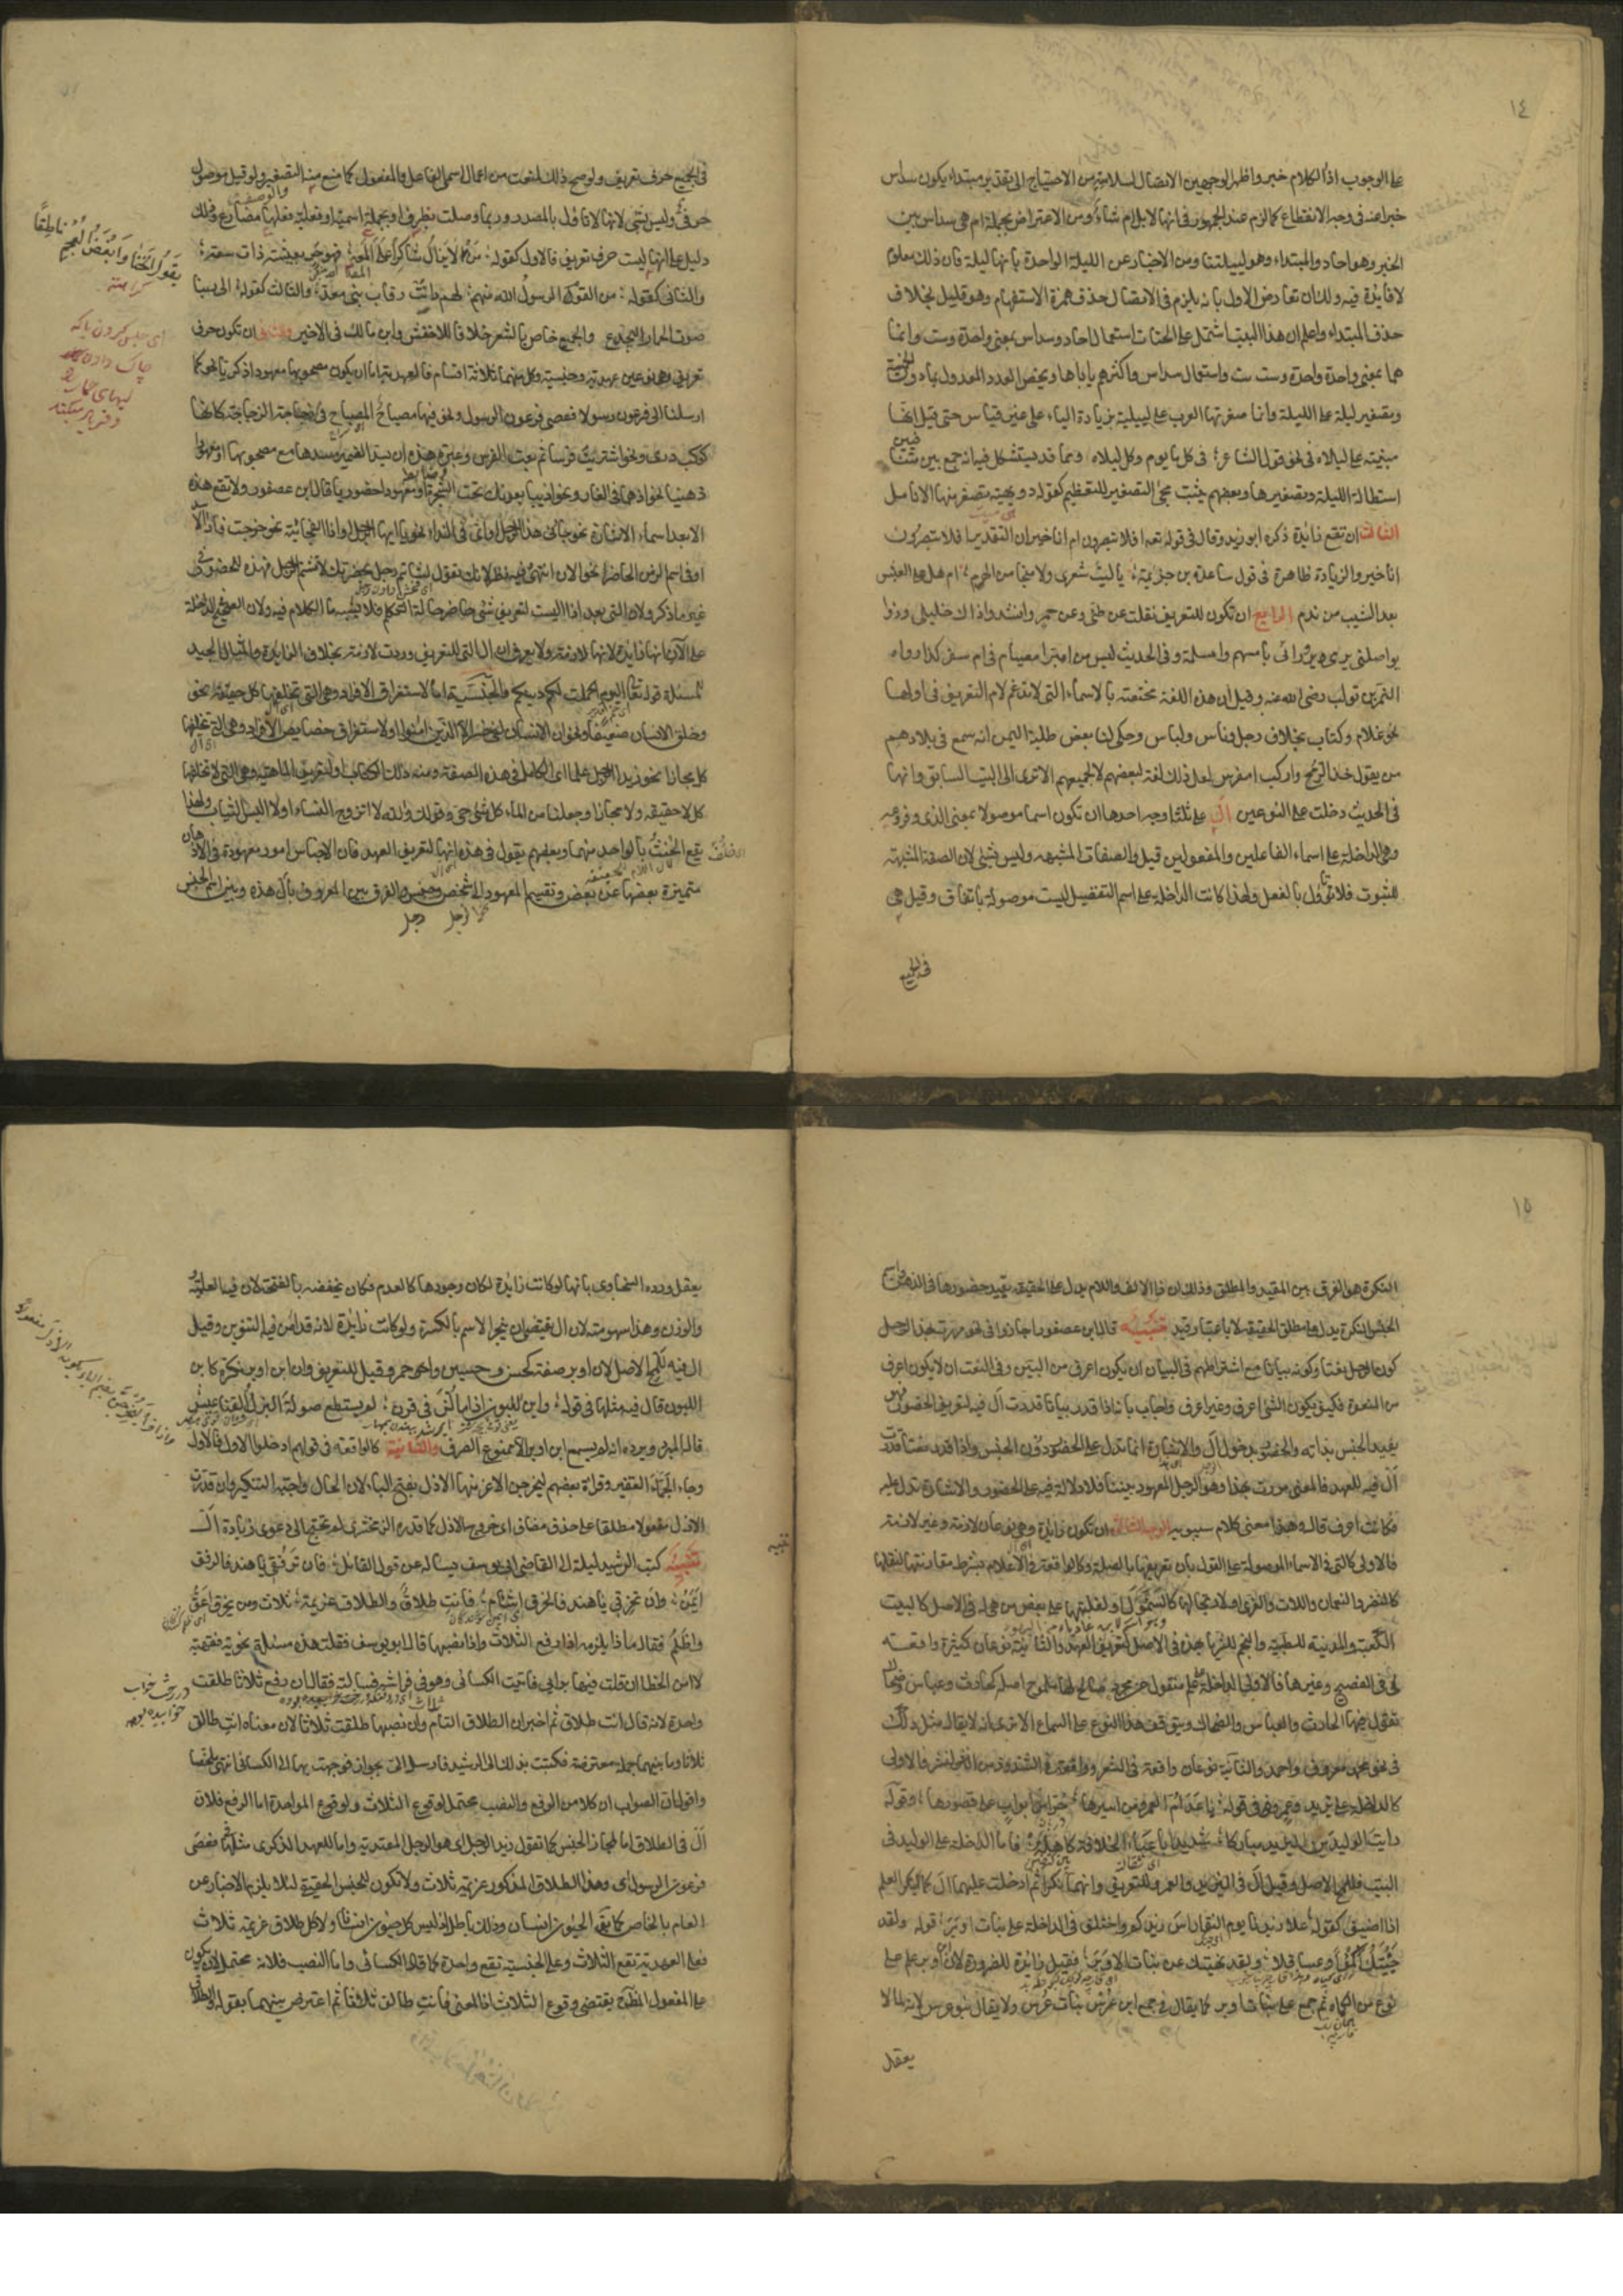 ١٤
على الوجوب اذ الكلام خبر واظهر الوجهين الاتصال لسلامته من الاحتياج الى تقدير مبتداء يكون سداس
خبرا عنه فى وجه الانقطاع كما لزم عند الجمهور فى انها لابل ام شاء ومن الاعتراض بجملة ام هى سداس بين
الخبر وهو احاد والمبتداء وهو لييلتنا ومن الاخبار عن الليلة الواحدة بانها ليلة فان ذلك معلوم
لا فايدة فيه ولك ان تعارض الاول بانه يلزم فى الاتصال حذف همزة الاستفهام وهو قليل بخلاف
حذف المبتداء واعلم ان هذا البيت اشتمل على لحنات استعمال احاد وسداس بمعنى واحدة وست وانما
هما بمعنى واحدة واحدة وست ست واستعمال سداس واكثرهم ياباها ويخص العدد المعدول بما دون الخمسة
وتصغير ليلة على الليلة وانما صغرتها العرب على لييلية بزيادة الياء على غير قياس حتى قيل انها
مبنية على ليلاه فى نحو قول الشاعر فى كل ما يوم وكل ليلاه ومما قد يستشكل فيه انه جمع بين متنافيين
استطالة الليلة وتصغيرها وبعضهم يثبت مجئ التصغير للتعظيم كقوله دويهية تصفر منها الانامل
الثالث ان تقع زائدة ذكره ابو زيد وقال فى قوله تعه افلا تبصرون ام انا خير ان التقدير افلا تبصرون
انا خير والزيادة ظاهرة فى قول ساعدة بن جزية يا ليت شعرى ولا منجا من الهرم ام هل على العيش
بعد الشيب من ندم الرابع ان تكون للتعريف نقلت عن طئ وعن حمير وانشدوا ذاك خليلى وذو
يواصلنى يرمى ورائى بامسهم وامسلمه وفى الحديث ليس من امبر امصيام فى امسفر كذا رواه
النمر بن تولب رضى الله عنه وقيل ان هذه اللغة مختصة بالاسماء التى لا تدغم لام التعريف فى اولها
نحو غلام وكتاب بخلاف رجل وناس ولباس وحكى لنا بعض طلبة اليمن انه سمع فى بلادهم
من يقول خذ الرمح واركب امفرس لعل ذلك لغة لبعضهم لا لجميعهم الا ترى الى البيت السابق وانها
فى الحديث دخلت على النوعين ال على ثلثة اوجه احدها ان تكون اسما موصولا بمعنى الذى وفروعه
وهى الداخلة على اسماء الفاعلين والمفعولين قيل والصفات المشبهه وليس بشئ لان الصفة المشبهة
للثبوت فلا تؤول بالفعل ولهذا كانت الداخلة على اسم التفضيل ليست موصولة باتفاق وقيل هى
فى الجميع
فى الجميع حرف تعريف ولو صح ذلك لمنعت من اعمال اسمى الفاعل والمفعول كما منع منه التصغير ولو قيل موصول
حرفى وليس بشئ لانها لا تاول بالمصدر وربما وصلت بظرف او بجملة اسمية او فعلية فعلها مضارع وذلك
دليل على انها ليست حرف تعريف فالاول كقوله من لا يزال شاكرا على المعه فهو حر بعيشة ذات سعه
والثانى كقوله من القوم الرسول الله منهم لهم دانت رقاب بنى معد والثالث كقوله الى ربنا
صوت الحمار اليجدع والجميع خاص بالشعر خلافا للاخفش وابن مالك فى الاخير والثانى ان تكون حرف
تعريف وهى نوعين عهدية وجنسية وكل منهما ثلاثة اقسام فالعهدية اما ان يكون مصحوبها معهودا ذكريا نحو كما
ارسلنا الى فرعون رسولا فعصى فرعون الرسول ونحو فيها مصباح المصباح فى زجاجة الزجاجة كانها
كوكب درى ونحو اشتريت فرسا ثم بعت الفرس وعبرة هذه ان يسد الضمير مسدها مع مصحوبها او معهودا
ذهنيا نحو اذ هما فى الغار ونحو اذ يبايعونك تحت الشجرة او معهودا حضوريا قال ابن عصفور ولا تقع هذه
الا بعد اسماء الاشارة نحو جاءنى هذا الرجل او اى فى النداء نحو يا ايها الرجل واذا الفجائية نحو خرجت فاذا الاسد
او فى اسم الزمن الحاضر نحو الان انتهى وفيه نظر لانك تقول لشاتم رجل بحضرتك لا تشتم الرجل فهذه للحضور فى
غير ما ذكر ولان التى بعد اذا ليست لتعريف شئ حاضر حالة التكلم فلا تشبه ما الكلام فيه ولان الصحيح الداخلة
على الآن انها زايدة لانها لازمة ولا يعرف ان ال التى للتعريف وردت لازمة بخلاف الزايدة والمثال الجيد
للمسئلة قوله تعه اليوم اكملت لكم دينكم والجنسية اما لاستغراق الافراد وهى التى تخلفها كل حقيقة نحو
وخلق الانسان ضعيفا ونحو ان الانسان لفى خسر الا الذين امنوا او لاستغراق خصايص الافراد وهى التى تخلفها
كل مجازا نحو زيد الرجل علما اى الكامل فى هذه الصفة ومنه ذلك الكتاب او لتعريف الماهية وهى التى لا تخلفها
كل لا حقيقة ولا مجازا وجعلنا من الماء كل شئ حى وقولك والله لا اتزوج النساء او لا البس الثياب ولهذا
يقع الحنث بالواحد منهما وبعضهم يقول فى هذه انها لتعريف العهد فان الاجناس امور معهودة فى الاذهان
متميزة بعضها عن بعض وتقسيم المعهود الى شخص وجنس والفرق بين المعروف بال هذه وبين اسم الجنس
يقول الخنا وابغض العجم ناطقا
١٥
النكرة هو الفرق بين المقيد والمطلق وذلك ان ذا الالف واللام يدل على الحقيقة بقيد حضورها فى الذهن واسم
الجنس النكرة يدل على مطلق الحقيقة لا باعتبار قيد تنبيه قال ابن عصفور اجازوا فى نحو مررت بهذا الرجل
كون الرجل نعتا وكونه بيانا مع اشتراطهم فى البيان ان يكون اعرف من المبين وفى النعت ان لا يكون اعرف
من المنعوت فكيف يكون الشئ اعرف وغير اعرف واجاب بانه اذا قدر بيانا قدرت ال فيه لتعريف الحضور فهو
يفيد الجنس بذاته والحضور بدخول ال والاشارة انما تدل على الحضور دون الجنس واذا قدر نعتا قدرت
ال فيه للعهد فالمعنى مررت بهذا وهو الرجل المعهود بيننا فلا دلالة فيه على الحضور والاشارة تدل عليه
فكانت اعرف قال وهذا معنى كلام سيبويه الوجه الثالث ان تكون زايدة وهى نوعان لازمة وغير لازمة
فالاولى كالتى فى الاسماء الموصولة على القول بان تعريفها بالصلة وكالواقعة فى الاعلام بشرط مقارنتها لنقلها
كالنضر والنعمان واللات والعزى او لارتجالها كالسموأل او لغلبتها على بعض من هى له فى الاصل كالبيت
للكعبة والمدينة لطيبة والنجم للثريا وهذه فى الاصل لتعريف العهد والثانية نوعان كثيرة واقعة
فى الفصيح وغيرها فالاولى الداخلة على علم منقول من مجرد صالح لها ملموح اصله كحارث وعباس وضحاك
تقول فيها الحارث والعباس والضحاك ويتوقف هذا النوع على السماع الا ترى انه لا يقال مثل ذلك
فى نحو محمد ومعروف واحمد والثانية نوعان واقعة فى الشعر وواقعة فى الشذوذ من النثر فالاولى
كالداخلة على يزيد وعمرو فى قوله باعد ام العمرو من اسيرها حراس ابواب على قصورها وقوله
رايت الوليد بن اليزيد مباركا شديدا باعباء الخلافة كاهله فاما الداخلة على الوليد فى
البيت فللمح الاصل وقيل ال فى اليزيد والعمرو للتعريف وانهما نكرا ثم ادخلت عليهما ال كما ينكر العلم
اذا اضيف كقوله علا زيدنا يوم النقا راس زيدكم واختلف فى الداخلة على بنات اوبر قوله ولقد
جنيتك اكمؤا وعساقلا ولقد نهيتك عن بنات الاوبر فقيل زايدة للضرورة لان ابن اوبر علم على
نوع من الكماة ثم جمع على بنات اوبر كما يقال فى جمع ابن عرس بنات عرس ولا يقال بنو عرس لانه لما لا
يعقل
يعقل ورده السخاوى بانها لو كانت زايدة لكان وجودها كالعدم فكان يخفضه بالفتحة لان فيه العلمية
والوزن وهذا سهو منه لان ال تقتضى ان ينجر الاسم بالكسرة ولو كانت زايدة لانه قد امن فيه التنوين وقيل
ال فيه للمح الاصل لان اوبر صفة كحسن وحسين واحمر وقيل للتعريف وان ابن اوبر نكرة كابن
اللبون قال فيه مثلها فى قوله وابن اللبون اذا ما لز فى قرن لم يستطع صولة البزل القناعيس
قاله المبرد ويرده انه لم يسمع ابن اوبر الا ممنوع الصرف والثانية كالواقعة فى قولهم ادخلوا الاول فالاول
وجاء الجماء الغفير وقراة بعضهم ليخرجن الاعز منها الاذل بفتح الياء لان الحال واجبة التنكير وان قدرت
الاذل مفعولا مطلقا على حذف مضاف اى خروج الاذل كما قدره الزمخشرى لم تحتج الى دعوى زيادة ال
تنبيه كتب الرشيد ليلة الى القاضى ابى يوسف يساله عن قول القائل فان ترفقى يا هند فالرفق
ايمن وان تخرقى يا هند فالخرق اشئام فانت طلاق والطلاق عزيمة ثلاث ومن يخرق اعق
واظلم فقال ماذا يلزمه اذا رفع الثلاث واذا نصبها قال ابو يوسف فقلت هذه مسئلة نحوية فقهية
لا امن الخطا ان قلت فيها برايى فاتيت الكسائى وهو فى فراشه فسالته فقال ان رفع ثلاثا طلقت
واحدة لانه قال انت طلاق ثم اخبر ان الطلاق التام وان نصبها طلقت ثلاثا لان معناه انت طالق
ثلاثا وما بينهما جملة معترضة فكتبت بذلك الى الرشيد فارسل الى بجوائز فوجهت بها الى الكسائى انتهى ملخصا
واقول ان الصواب ان كلا من الرفع والنصب محتمل لوقوع الثلاث ولوقوع الواحدة اما الرفع فلان
ال فى الطلاق اما لمجاز الجنس كما تقول زيد الرجل اى هو الرجل المعتد به واما للعهد الذكرى مثلها فى فعصى
فرعون الرسول اى وهذا الطلاق المذكور عزيمة ثلاث ولا تكون للجنس الحقيقى لئلا يلزم الاخبار عن
العام بالخاص كما يق الحيوان انسان وذلك باطل اذ ليس كل حيوان انسانا ولا كل طلاق عزيمة ثلاث
فعلى العهدية تقع الثلاث وعلى الجنسية تقع واحدة كما قال الكسائى واما النصب فلانه محتمل لان يكون
على المفعول المطلق يقتضى وقوع الثلاث اذ المعنى فانت طالق ثلاثا ثم اعترض بينهما بقوله والطلاق
تنبيه